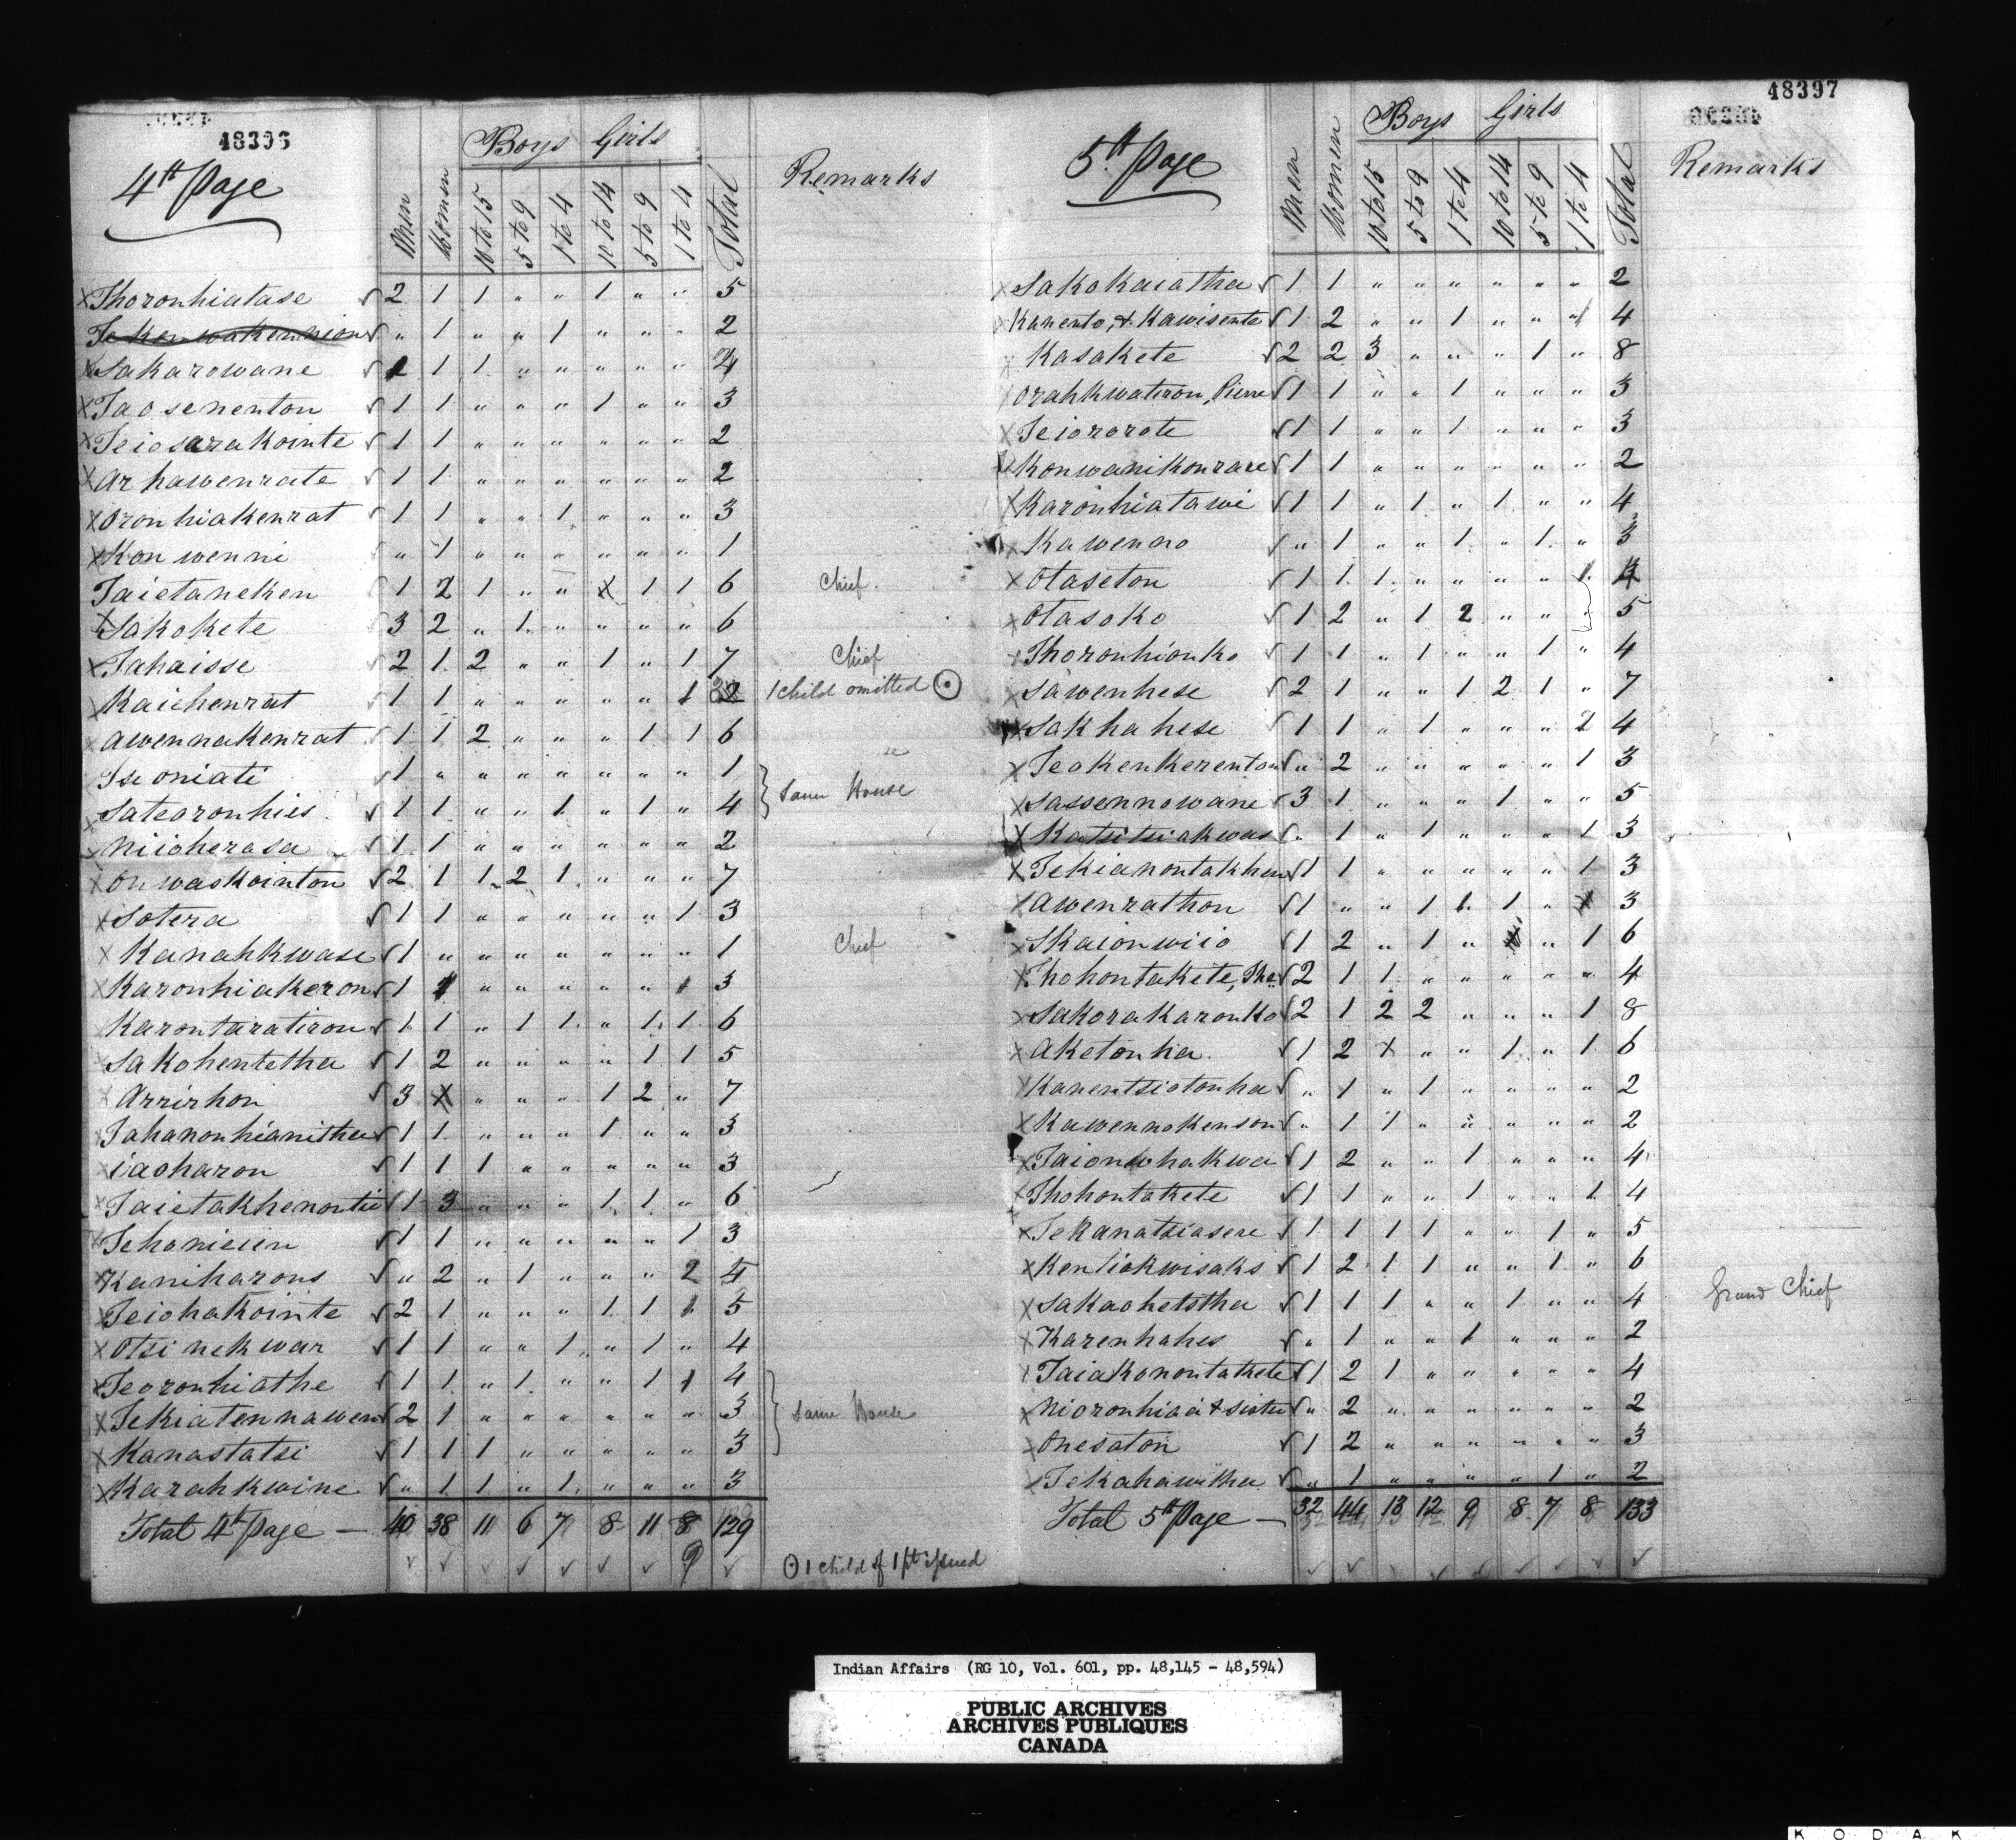 48396
4th Page
Men Women Boys 10 to 15 5 to 9 1 to 4 Girls 10 to 14 5 to 9 1 to 4 Total Remarks
x Thoronhiatase √ 2 1 1 " " 1 " " 5
Tekenwakennion √ " 1 " " 1 " " " 2
x Sakarowane √ 2 1 1 " " " " " 4
x Taosenenton √ 1 1 " " " 1 " " 3
x Teiosarakointe √ 1 1 " " " " " " 2
x Arhawenrate √ 1 1 " " " " " " 2
x Oronhiakenrat √ 1 1 " " 1 " " " 3
x Konwenni " 1 " " " " " " 1
Taietaneken √ 1 2 1 " " x 1 1 6 Chief.
x Sakokete √ 3 2 " 1 " " " " 6
x Tahaisse √ 2 1 2 " " 1 " 1 7 Chief
x Kaichenrat √ 1 1 " " " " " 1 2 1 child omitted ⊙
x Awennakenrat √ 1 1 2 " " " 1 1 6
x Tseoniati √ 1 " " " " " " " 1
x Sateoronhies √ 1 1 " " 1 " 1 " 4 } Same House
x Niioherasa √ 1 1 " " " " " " 2
x Onwaskointon √ 2 1 1 2 1 " " " 7
x Sotera √ 1 1 " " " " " 1 3
x Kanahkwase √ 1 " " " " " " " 1 Chief
x Karonhiakeron √ 1 1 " " " " " 1 3
x Karontaratiron √ 1 1 " 1 1 " 1 1 6
x Sakohentetha √ 1 2 " " " " 1 1 5
x Arrirhon √ 3 x " " " 1 2 " 7
x Tahanonhianitha √ 1 1 " " " 1 " " 3
x iaoharon √ 1 1 1 " " " " " 3
x Taietakhenontie √ 1 3 " " " 1 1 " 6
x Tehonieien √ 1 1 " " " " " 1 3
x Kaniharons √ " 2 " 1 " " " 2 5
x Teiohakointe √ 2 1 " " " 1 1 1 5
x Otsinekwar √ 1 1 " " 1 " 1 " 4
x Teoronhiathe √ 1 1 " 1 " " 1 1 4
x Tekiatennawen √ 2 1 " " " " " " 3 } Same House
x Kanastatsi √ 1 1 1 " " " " " 3
x Karahkwine √ " 1 1 " 1 " " " 3
Total 4th Page — 40 38 11 6 7 8 11 8 129
√ √ √ √ √ √ √ 9 √ ⊙ 1 child of 1 pt issued
48397
5th Page
Men Women Boys 10 to 15 5 to 9 1 to 4 Girls 10 to 14 5 to 9 1 to 4 Total Remarks
x Sakokaiatha √ 1 1 " " " " " " 2
x Kanento, & Kawisente √ 1 2 " " 1 " " " 4
x Kasakete √ 2 2 3 " " " 1 " 8
x Orahkwatiron, Pierre √ 1 1 " " 1 " " " 3
x Teiororote √ 1 1 " " 1 " " " 3
x Konwanikonrare √ 1 1 " " " " " " 2
x Karonhiatawi √ 1 1 " 1 " 1 " " 4
x Kawenno √ " 1 " " 1 " 1 " 3
x Otaseton √ 1 1 1 " " " " 1 4
x Otasoko √ 1 2 " 1 2 " " " 5
x Thoronhionko √ 1 1 " 1 " " 1 " 4
x Sawenhese √ 2 1 " " 1 2 1 " 7
x Sakhahese √ 1 1 " 1 " " " 2 4
x Teokenkerenton √ " 2 " " " " " 1 3
x Sassennowane √ 3 1 " " " 1 " " 5
x Katsitsiakwas √ " 1 " 1 " " " 1 3
x Tekianontakhen √ 1 1 " " " " " 1 3
x Awenrathon √ 1 " " 1 1 1 " x 3
x Skaionwiio √ 1 2 " 1 " x " 1 6
x Thohontakete, Tha √ 2 1 1 " " " " " 4
x Sakorakaronko √ 2 1 2 2 " " " 1 8
x Aketonha √ 1 2 x " " 1 " 1 6
x Kanentsiotonha √ " 1 " 1 " " " " 2
x Kawennokenson √ " 1 1 " " " " " 2
x Taionwhakwa √ 1 2 " " 1 " " " 4
x Thohontakete √ 1 1 " " 1 " " 1 4
x Tekanatsiasere √ 1 1 1 1 " " 1 " 5
x Kentiokwisaks √ 1 2 1 1 " " 1 " 6
x Sakaohetstha √ 1 1 1 " " 1 " " 4 Grand Chief
x Karenhahes √ " 1 " " 1 " " " 2
x Taiakonontakete √ 1 2 1 " " " " " 4
x Nioronhiaa & sister √ " 2 " " " " " " 2
x Onesaton √ 1 2 " " " " " " 3
x Tekahawitha √ " 1 " " " " 1 " 2
Total 5th Page — 32 44 13 12 9 8 7 8 133
√ √ √ √ √ √ √ √ √
Indian Affairs (RG 10, Vol. 601, pp. 48,145 - 48,594)
PUBLIC ARCHIVES
ARCHIVES PUBLIQUES
CANADA
KODAK